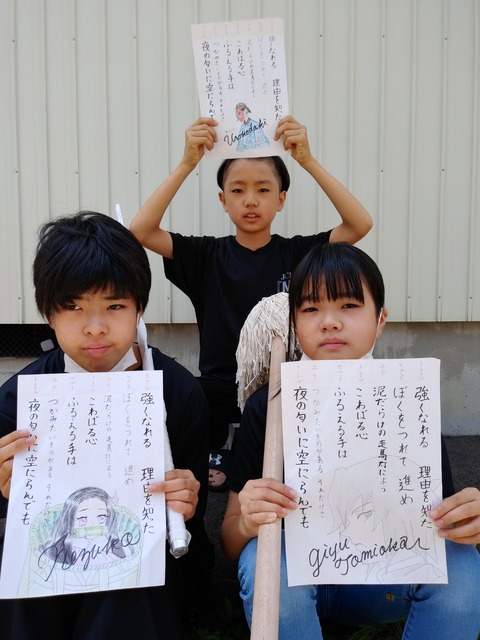 強くなれる 理由を知た
ぼくをつれて 進め
泥だらけの走馬灯によう
こわばる心
ふるえる手は
夜の匂いに空にらんでも
Urokodaki
強くなれる 理由を知た
ぼくをつれて 進め
泥だらけの走馬灯によう
こわばる心
ふるえる手は
つかみたいものがある
夜の匂いに空にらんでも
Nezuko
強くなれる 理由を知た
ぼくをつれて 進め
泥だらけの走馬灯によう
こわばる心
ふるえる手は
つかみたいものがある それだけさ
夜の匂いに空にらんでも
giyu Tomioka